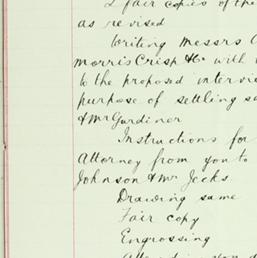 2 fair copies of the
as revised
Writing Messrs
Morris Crisp & Co with
to the proposed interview
purpose of settling sa
& Mr Gardiner
Instructions for
Attorney from you to
Johnson & Mr Jecks.
Drawing same
Fair copy
Engrossing